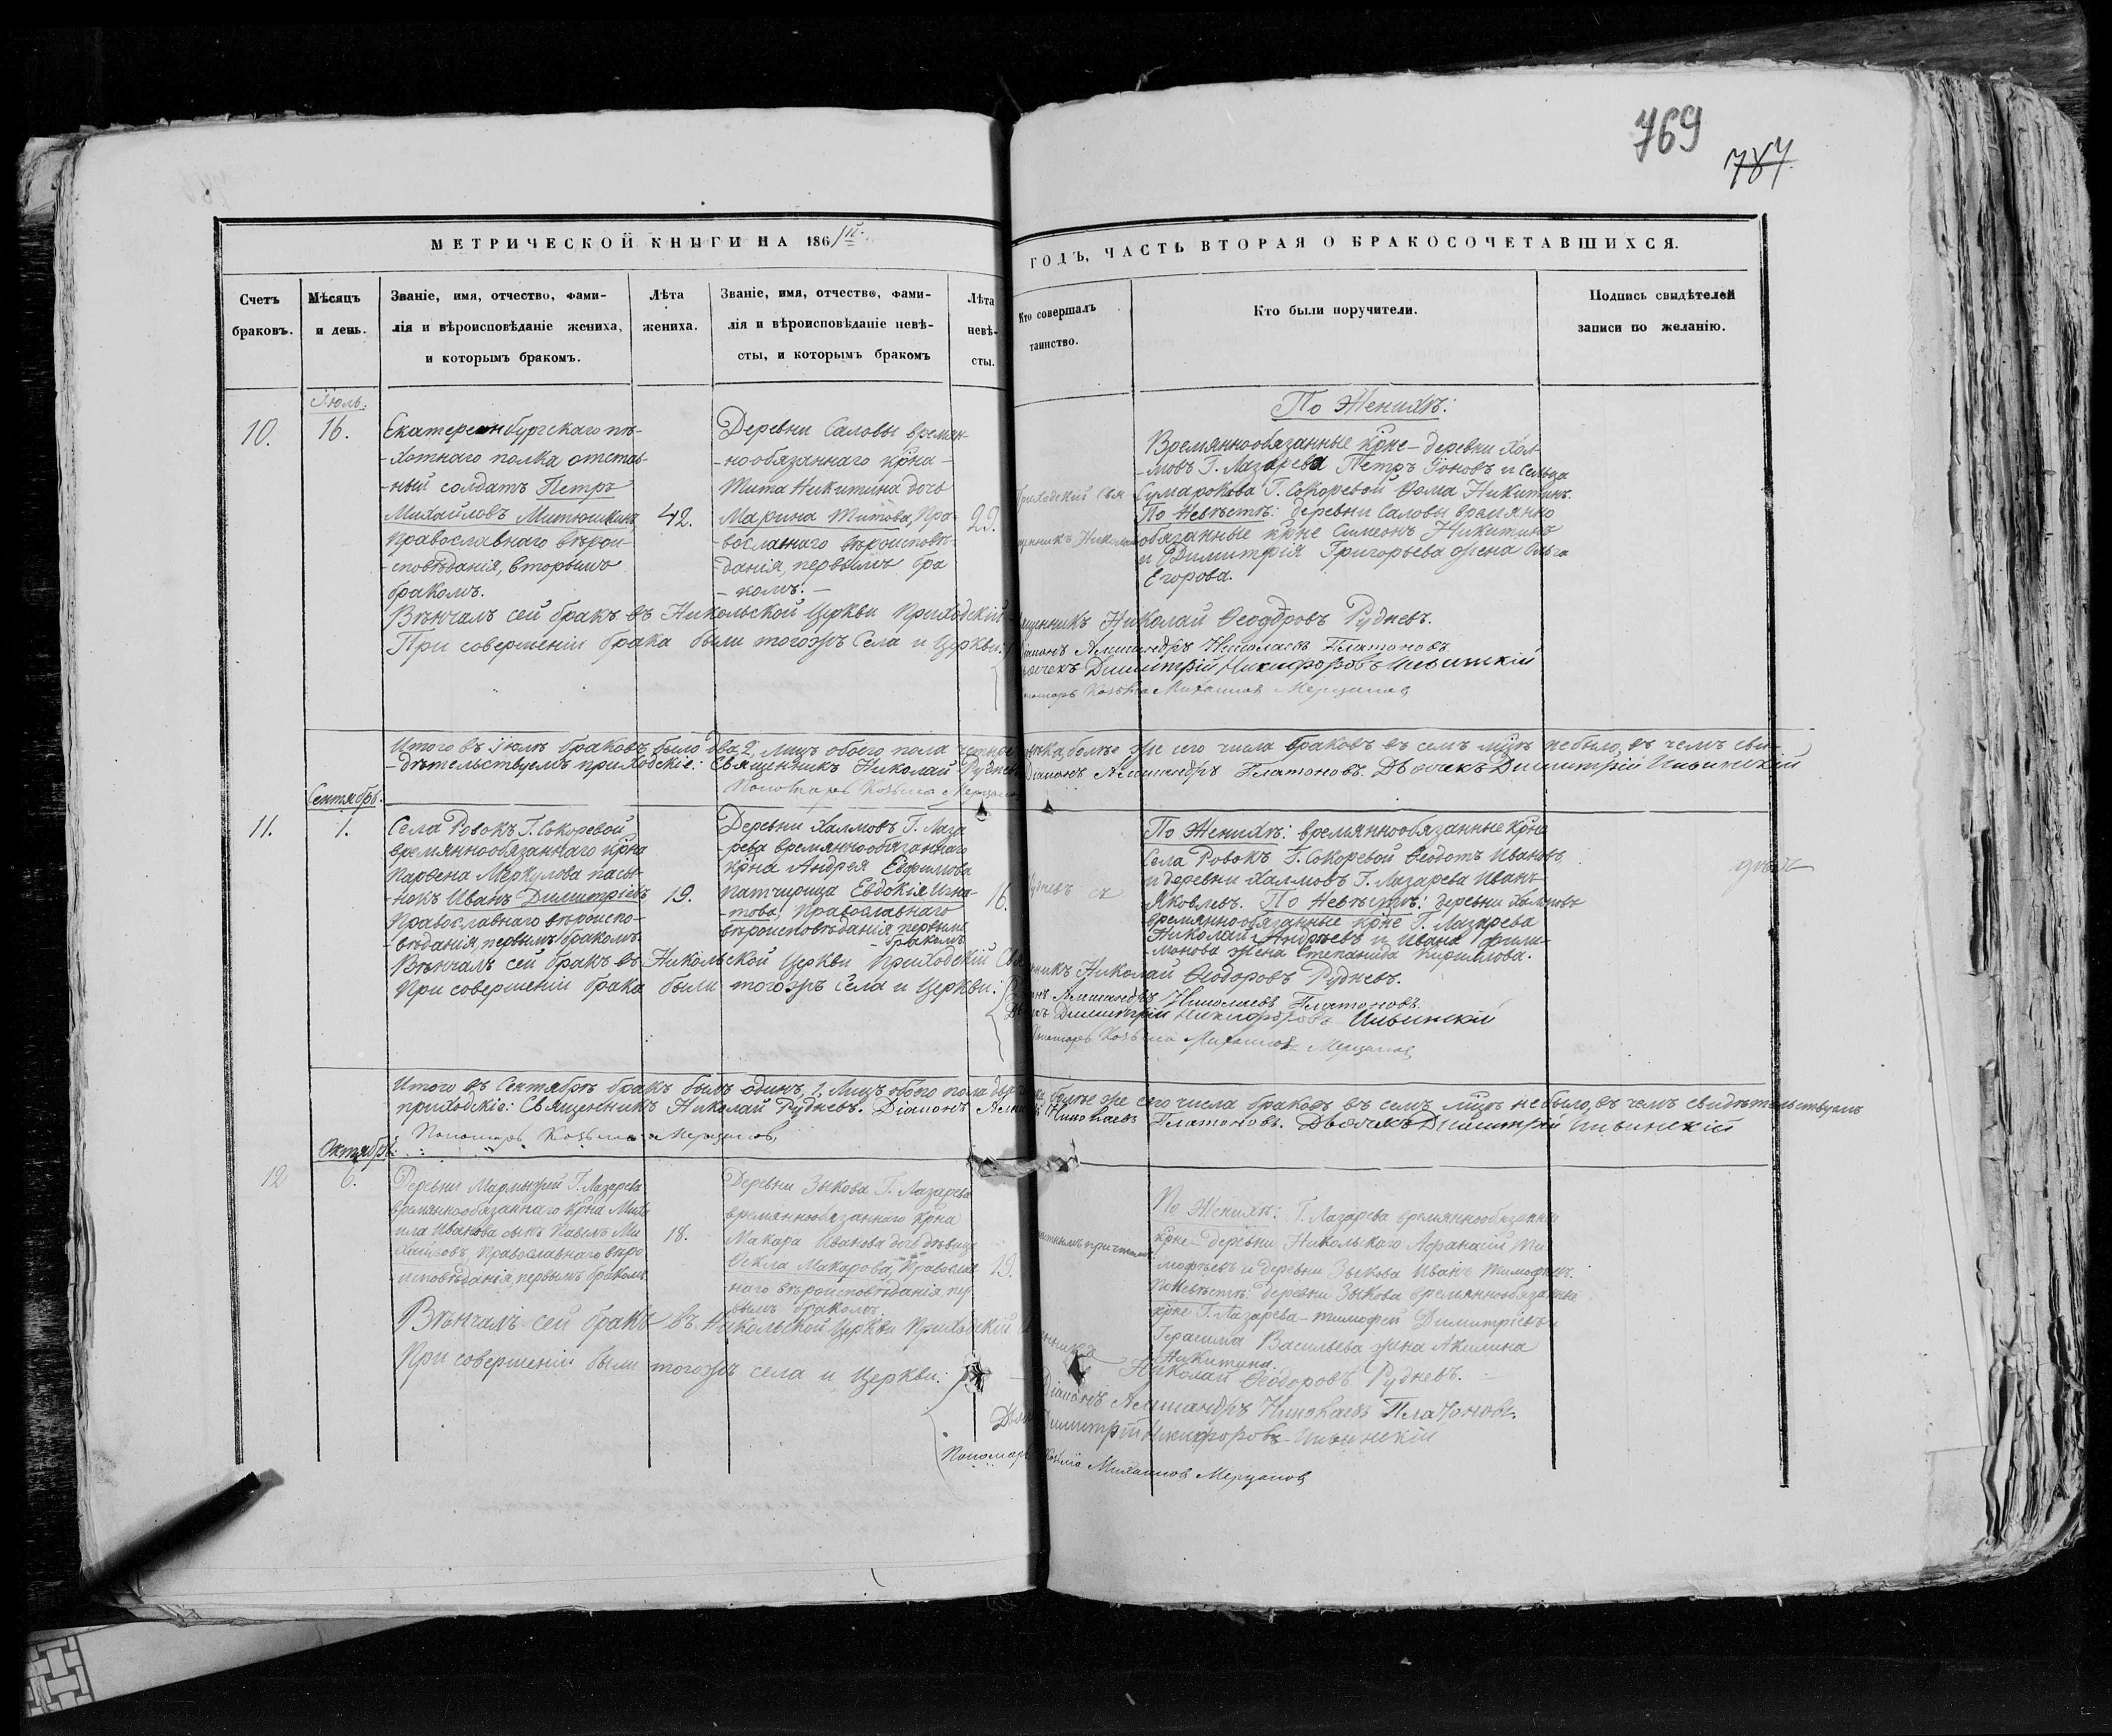 769
787
МЕТРИЧЕСКОЙ КНИГИ НА 1861й. ГОДЪ, ЧАСТЬ ВТОРАЯ О БРАКОСОЧЕТАВШИХСЯ.
Счетъ браковъ.
Мѣсяцъ и день.
Званіе, имя, отчество, фами-
лія и вѣроисповѣданіе жениха,
и которымъ бракомъ.
Лѣта жениха.
Званіе, имя, отчество, фами-
лія и вѣроисповѣданіе невѣ-
сты, и которымъ бракомъ
Лѣта невѣ-
сты.
Кто совершалъ
таинство.
Кто были поручители.
Подпись свидѣтелей
записи по желанію.
Іюль.
10.
16.
Екатеренбургскаго пѣ-
-хотнаго полка отстав-
-ный солдатъ Петръ
Михайловъ Митюшкинъ
православнаго вѣрои-
-сповѣданія, вторымъ
бракомъ.
42.
Деревни Саловы времен-
-нообязаннаго кр̃на-
Тита Никитина дочь
Марина Титова, Пра-
-вославнаго вѣроисповѣ-
-данія, первымъ бра
-комъ.-
29.
Приходскій Свя
щенникъ Николай
По Женихѣ:
Времяннообязанные кр̃не-деревни Хал-
-мовъ Г. Лазарева Петръ Іоновъ и Сельца
Сумарокова Г. Сокоревой Ѳома Никитинъ.
По Невѣстѣ: деревни Саловы времянно
обязанные кр̃не Симеонъ Никитинъ
и Димитрія Григорьева жена Ольга
Егорова.
Вѣнчалъ сей бракъ въ Никольской Церкви Приходскій Священникъ Николай Ѳеодоровъ Рудневъ.
При совершеніи брака были тогожъ Села и Церкви: Діаконъ Александръ Николаевъ Платоновъ
Дьячекъ Димитрій Никифоровъ Ильинскій
Пономарь Козьма Михаиловъ Мерцаловъ
Итого въ Іюлѣ браковъ было два, 2, Лицъ обоего пола четыре человѣка, болѣе же сего числа браковъ въ семъ м̃цѣ не было, въ чемъ сви-
-дѣтельствуемъ приходскіе: Священникъ Николай Рудневъ Діаконъ Александръ Платоновъ. Дьячекъ Димитрій Ильинскій
Пономарь Козьма Мерцаловъ
Сентябрь.
11.
1.
Села Ровокъ Г. Сокоревой
времяннообязаннаго кр̃на
Парѳена Меркулова пасы-
-нокъ Иванъ Димитріевъ
Православнаго вѣроиспо-
-вѣданія, первымъ бракомъ.
19.
Деревни Халмовъ Г. Лаза
-рева времяннообязаннаго
кр̃на Андрея Евфимова
патчирица Евдокія Игна
-това, Православнаго
вѣроисповѣданія, первымъ
-бракомъ
16.
Рудневъ съ
По Женихѣ: времяннообязанные кр̃не
Села Ровокъ Г. Сокоревой Ѳеодотъ Ивановъ
и деревни Халмовъ Г. Лазарева Иванъ
Яковлевъ. По Невѣстѣ: деревни Халмовъ
времяннообязанные кр̃не Г. Лазарева
Николай Андреевъ и Ивана Фили-
-монова жена Степанида Кирилова.
Вѣнчалъ сей бракъ въ Никольской Церкви Приходскій Священникъ Николай Ѳеодоровъ Рудневъ.
При совершеніи брака были тогожъ Села и Церкви: Діаконъ Александръ Николаевъ Платоновъ.
Дьячекъ Димитрій Никифоровъ Ильинскій
Пономарь Козьма Михаиловъ Мерцаловъ
Итого въ Сентябрѣ бракъ былъ одинъ, 1, Лицъ обоего пола два человѣка болѣе же сего числа браковъ въ семъ м̃цѣ не было, въ чемъ свидѣтельствуемъ
приходскіе: Священникъ Николай Рудневъ. Діаконъ Александръ Николаевъ Платоновъ. Дьячекъ Димитрій Ильинскій
Пономарь Козьма Мерцаловъ
Октябрь.
12
6.
Деревни Мармыжей Г. Лазарева
времяннообязаннаго кр̃на Миха
ила Иванова сынъ Павелъ Ми
хаиловъ, Православнаго вѣро
-исповѣданія, первымъ бракомъ.
18.
Деревни Зыкова Г. Лазарева
времяннообязаннаго кр̃на
Макара Иванова дочь дѣвица
Ѳекла Макарова, Православ
наго вѣроисповѣданія, пер
вымъ бракомъ.
19.
причтомъ
По Женихѣ: Г. Лазарева времяннообязанные
кр̃не-деревни Никольскаго Афанасій Ти-
мофѣевъ и деревни Зыкова Иванъ Тимофѣевъ.
По Невѣстѣ: деревни Зыкова времяннообязанные
кр̃не Г. Лазарева-Тимофей Димитріевъ и
Герасима Васильева жена Акилина
Никитина.
Вѣнчалъ сей бракъ въ Никольской Церкви Приходскій Священникъ Николай Ѳеодоровъ Рудневъ.-
При совершеніи были тогожъ села и Церкви: Діаконъ Александръ Николаевъ Платоновъ.
Дьячекъ Димитрій Никифоровъ Ильинскій
Пономарь Козьма Михаиловъ Мерцаловъ